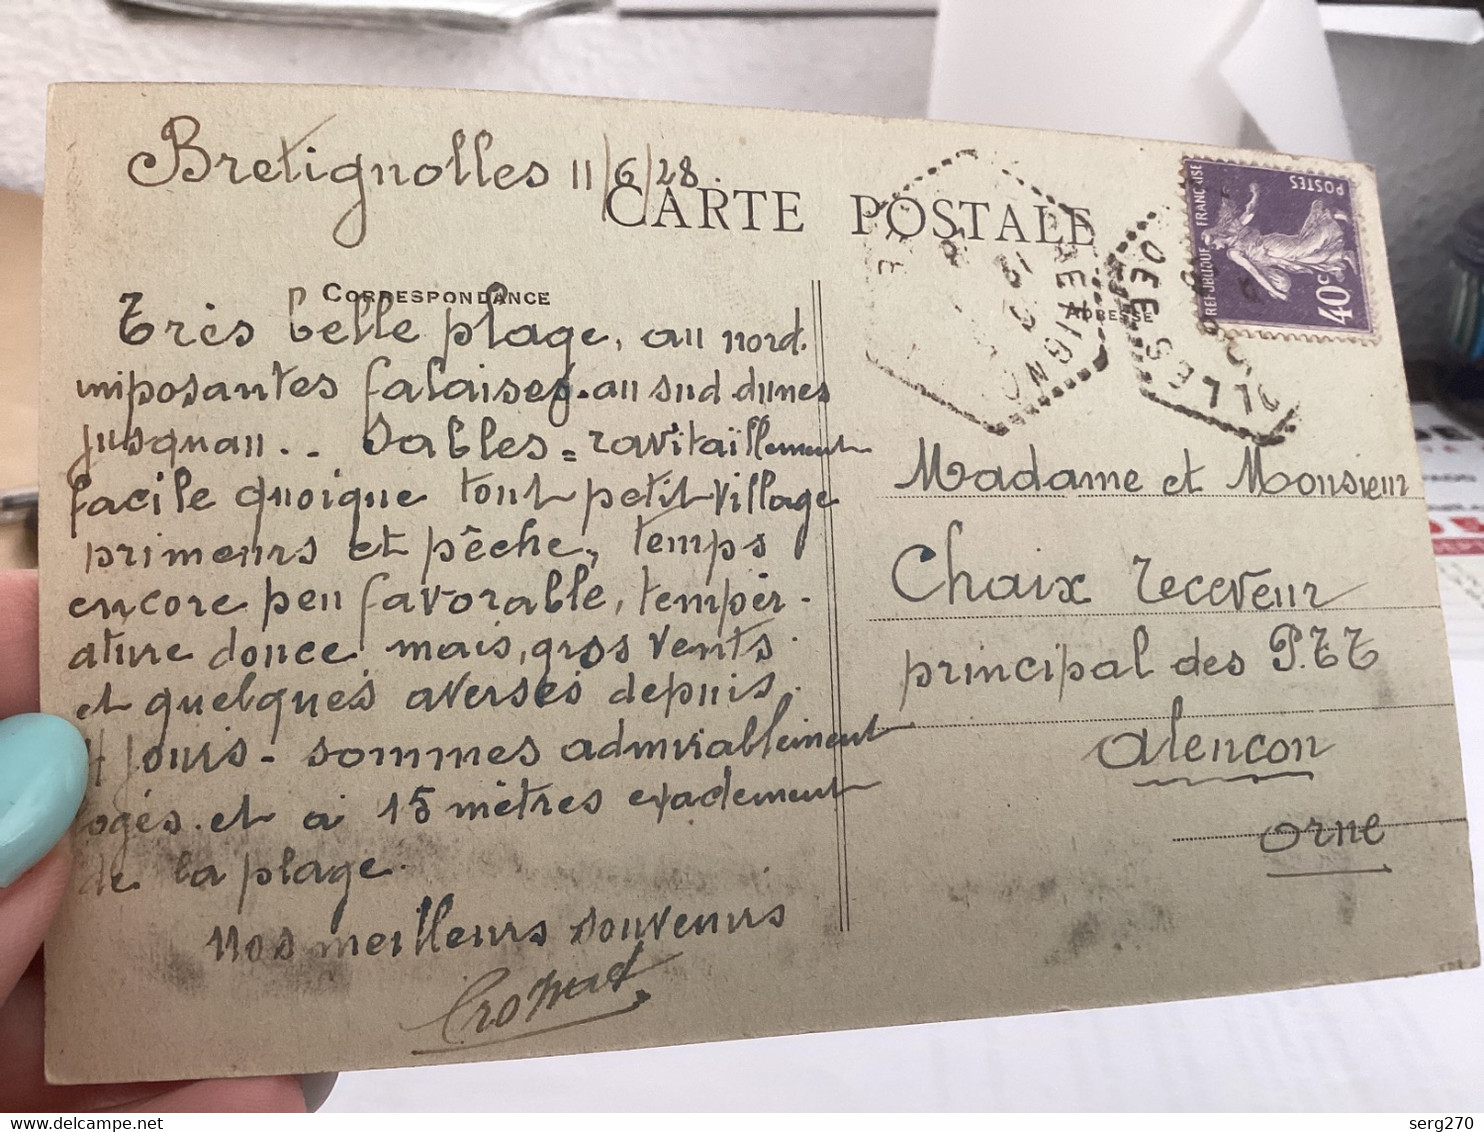 Bretignolles 11/6/28.
CARTE POSTALE
CORRESPONDANCE
Très belle plage, au nord.
imposantes falaises. au sud dunes
jusquau.. Sables = ravitaïllement
facile quoique tout petit village
primeurs et pêche, temps
encore peu favorable, tempér-
ature douce mais, gros vents.
et quelques averses depuis.
4 jours - sommes admirablement
logés. et à 15 mètres exactement
de la plage.
nos meilleurs souvenirs
ADRESSE
POSTES
REPUBLIQUE FRANÇAISE
40c
Madame et Monsieur
Chaix receveur
principal des P.T.T
Alençon
Orne
serg270